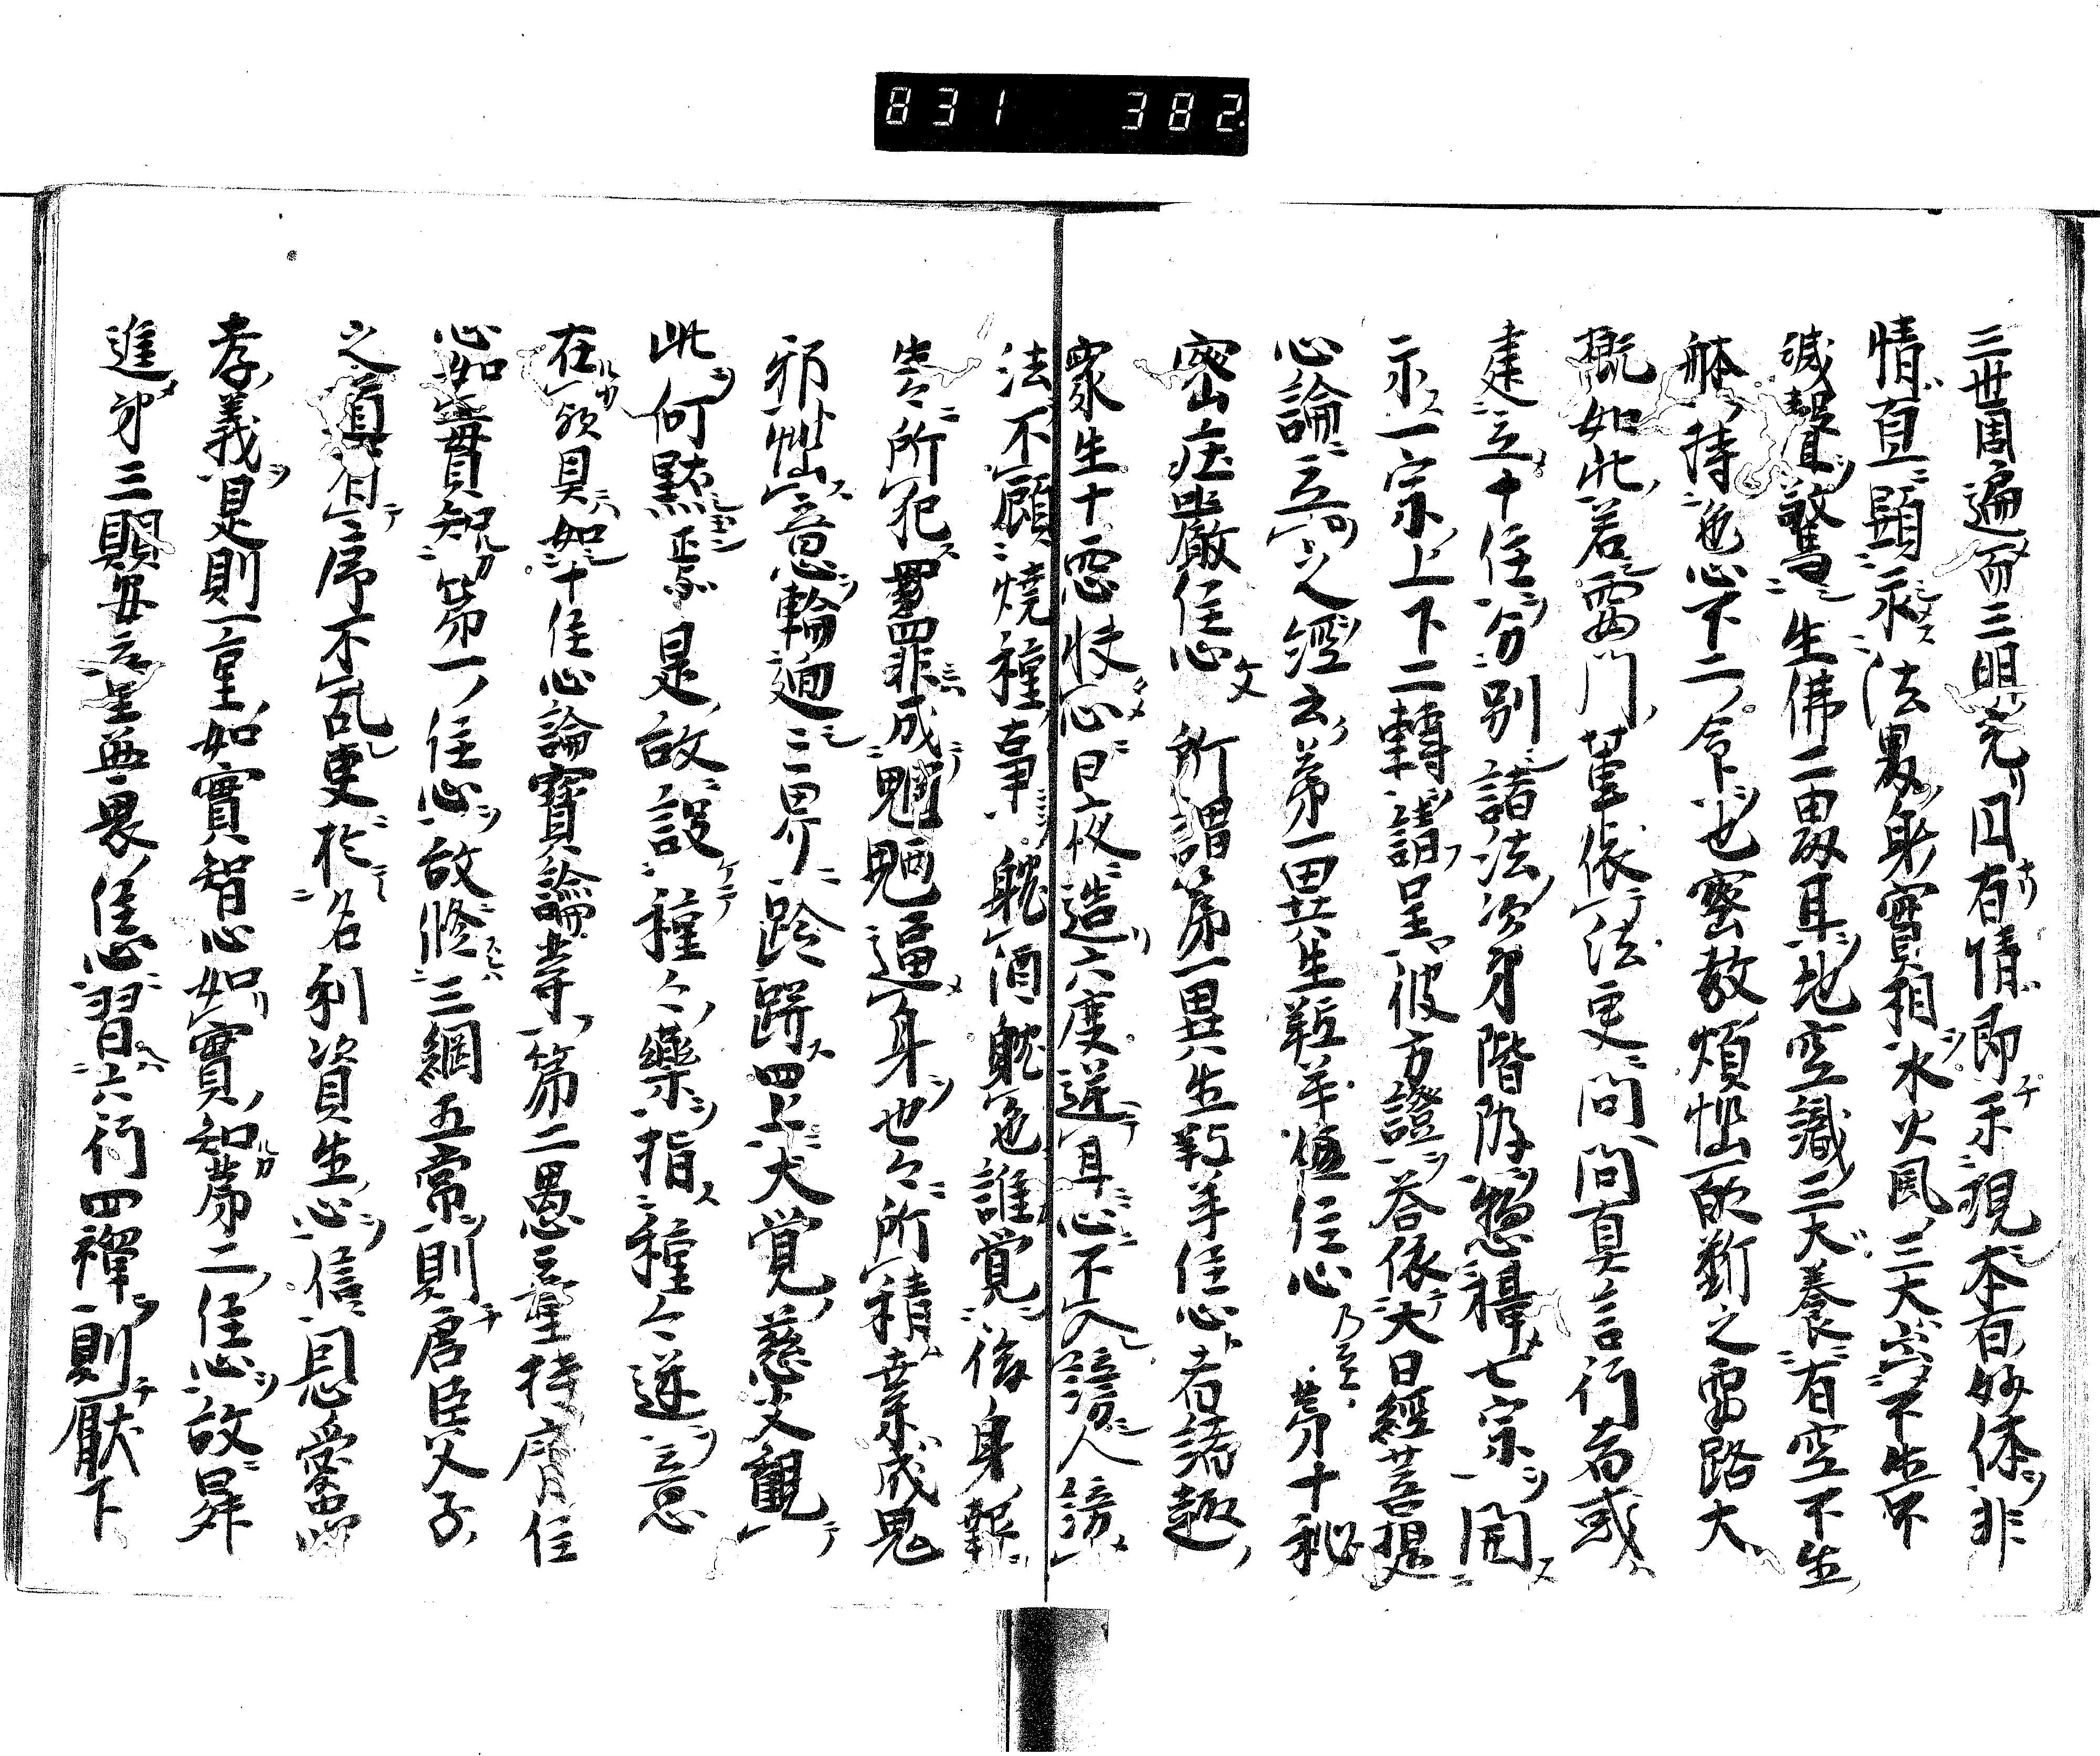 831 382
三世周遍而三明究日有情即示現本有妙体非
情直顕示法界身實相水火風三大空不生不
滅聲驚生佛二界耳地空識三大養有空不生
躰持色心不二令也密教煩惱即断之雷路大
概如此若要門葷依法更問問真言行者或
建立十住分別諸法次第階降懸褝七宗一開
示一宗上下二轉謂呈彼方證答依大日經菩提
心論立之經云第一異生羝羊住心乃至第十秘
密庄嚴住心文所謂第一異生羝羊住心者諸趣
衆生十惡快心日夜造六度逆耳心不入謗人謗
法不顧燒種事躭酒躭色誰覺後身報
生々所犯衆罪成魍魎逼身也々所積業成鬼
邪惱意輪廻三界跉跰四生大覚慈父觀
此何黙正業是故設種々藥指種々迷意
在顕具如十住心論寶論等第二愚童持齋住
心如實知第一住心故修三綱五常則君臣父子
之道有序不乱更於名利資生心信恩愛
孝義是則一童如實智心如實知第二住心故昇
進第三嬰童無畏住心習六行四禪則厭下